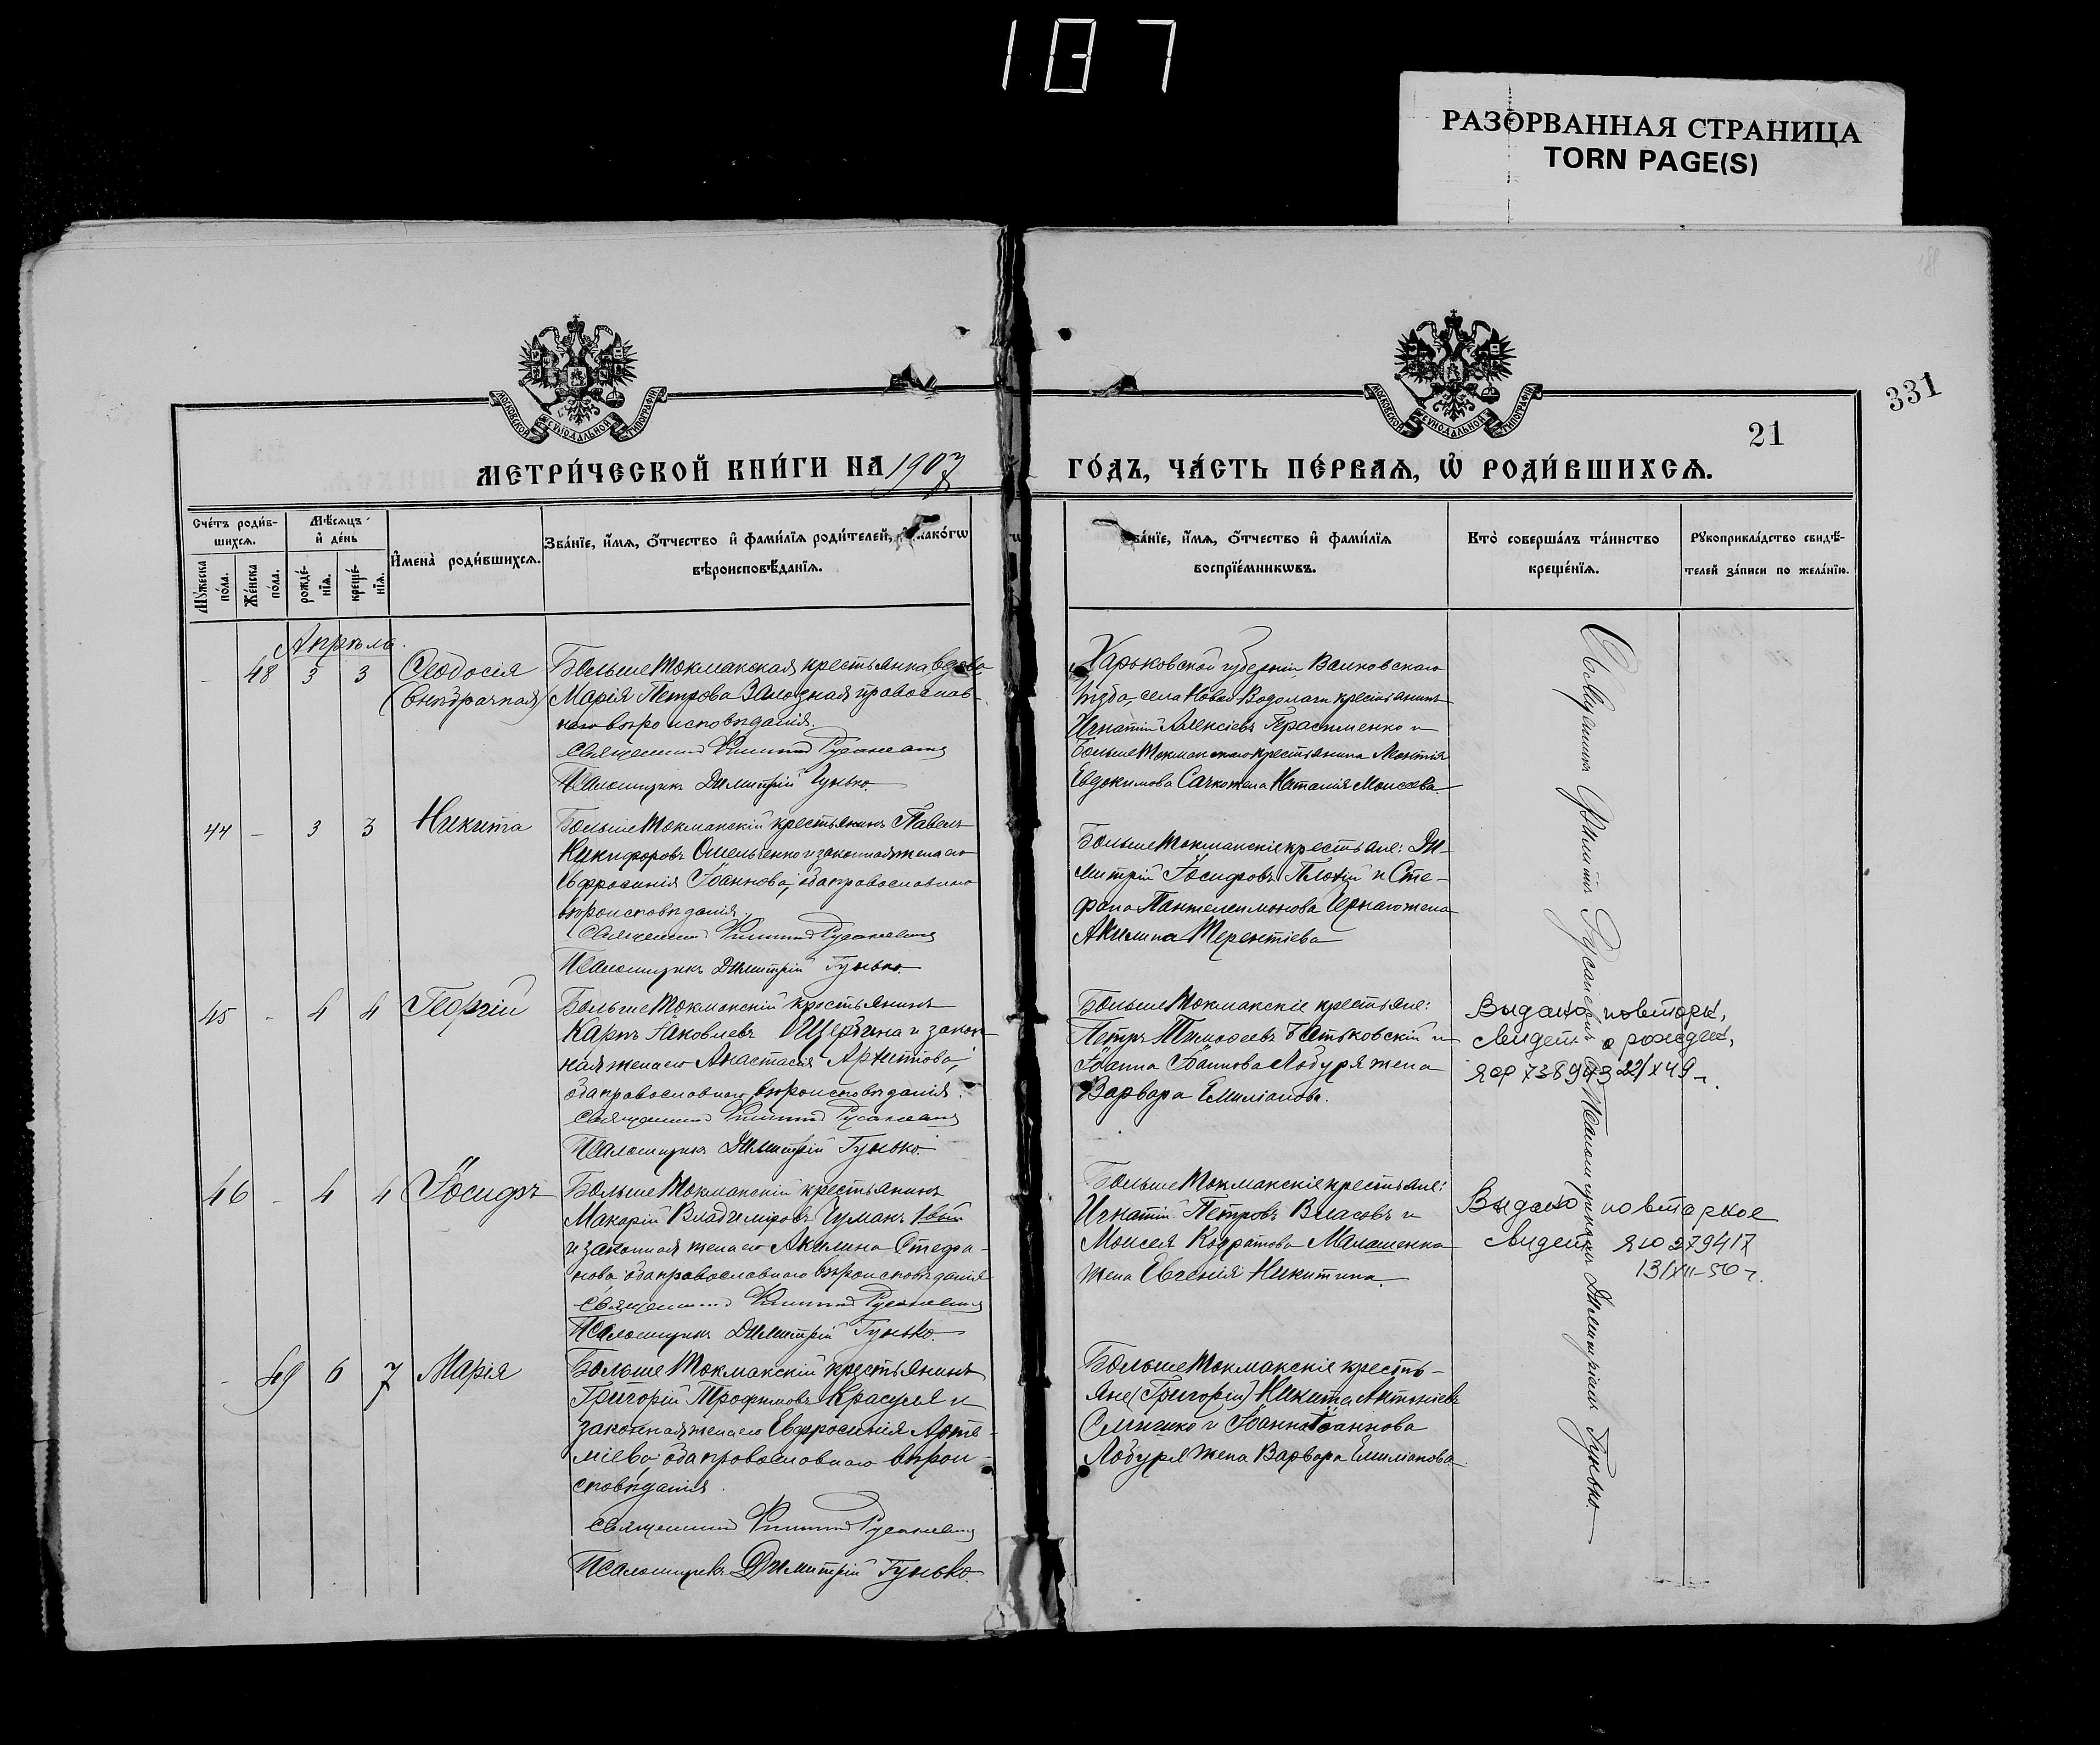 187
РАЗОРВАННАЯ СТРАНИЦА
TORN PAGE(S)
331
21
МОСКОВСКОЙ СѴНОДАЛЬНОЙ ТИПОГРАФІИ
МОСКОВСКОЙ СѴНОДАЛЬНОЙ ТИПОГРАФІИ
МЕТРИ́ЧЕСКОЙ КНИ́ГИ НА 1907
ГО́ДЪ, ЧА́СТЬ ПЕ́РВАѦ, Ѡ РОДИ́ВШИХСѦ.
Сче́тъ роди́в-
шихсѧ.
Мѣ́сѧцъ
и де́нь
Мꙋ́жеска по́ла.
Же́нска по́ла.
рожде́-
нїѧ.
креще́-
нїѧ.
И҆мена̀ роди́вшихсѧ.
Зва́нїе, и҆́мѧ, ѻ҆́тчество и҆ фами́лїѧ роди́телей, и҆ како́гѡ
вѣроисповѣ́данїѧ.
Зва́нїе, и҆́мѧ, ѻ҆́тчество и҆ фами́лїѧ
воспрїе́мникѡвъ.
Кто̀ соверша́лъ та́инство
креще́нїѧ.
Рꙋкоприкла́дство свидѣ́-
телей за́писи по жела́нїю.
Апрѣль.
- 48 3 3 Ѳеодосія
(внѣбрачная)
БольшеТокмакская крестьянка вдова
Марія Петрова Залозная православ-
наго вѣроисповѣданія.
Священникъ Филиппъ Русаневичъ
Псаломщикъ Димитрій Гунько.
Харьковской губерніи, Валковскаго
уѣзда, села Новой-Водолаги крестьянинъ
Игнатій Алексіевъ Герасименко и
БольшеТокмакскаго крестьянина
Евдокимова жена Наталія Моисеева.
44 - 3 3 Никита
БольшеТокмакскій крестьянинъ Павелъ
Никифоровъ Омельченко и законная жена его
Евфросинія Іоаннова, оба православнаго
вѣроисповѣданія.
Священникъ Филиппъ Русаневичъ
Псаломщикъ Димитрій Гунько.
БольшеТокмакскіе крестьяне: Ди-
митрій Іосифовъ Плохій и Сте-
фана Пантелеимонова Чернаго жена
Акилина Терентіева
45 - 4 4 Георгій
БольшеТокмакскій крестьянинъ
Карпъ Іаковлевъ Щербина и закон-
ная жена его Анастасія
оба православнаго вѣроисповѣданія.
Священникъ Филиппъ Русаневичъ
Псаломщикъ Димитрій Гунько.
БольшеТокмакскіе крестьяне:
Петръ Тимоѳеевъ и
Іоанна Іоаннова Лобуря жена
Варвара Емиліанова.
Выдано повторн.
свидет. о рожден.
ЯФ 738943 22/X 49 г.
46 - 4 4 Іосифъ
БольшеТокмакскій крестьянинъ
Макарій Владиміровъ Чумакъ 1вый
и законная жена его Акилина Стефа-
нова оба православнаго вѣроисповѣданія
Священникъ Филиппъ Русаневичъ
Псаломщикъ Димитрій Гунько.
БольшеТокмакскіе крестьяне:
Игнатій Петровъ Власовъ и
Моисея Кодратова Малашенка
жена Евгенія Никитина.
Выдано повторное
свидет. ЯЮ 279417
13/XII-50 г.
- 49 6 7 Марія
БольшеТокмакскій крестьянинъ
Григорій Трофимовъ Красуля и
законная жена его Евфросинія Арте-
міева, оба православнаго вѣрои-
сповѣданія.
Священникъ Филиппъ Русаневичъ
Псаломщикъ Димитрій Гунько.
БольшеТокмакскіе кресть-
яне (Григорій) Никита Антоніевъ
и Іоанна Іоаннова
Лобуря жена Варвара Емиліанова
Священникъ Филиппъ Русаневичъ съ Псаломщикомъ Димитріемъ Гунько.